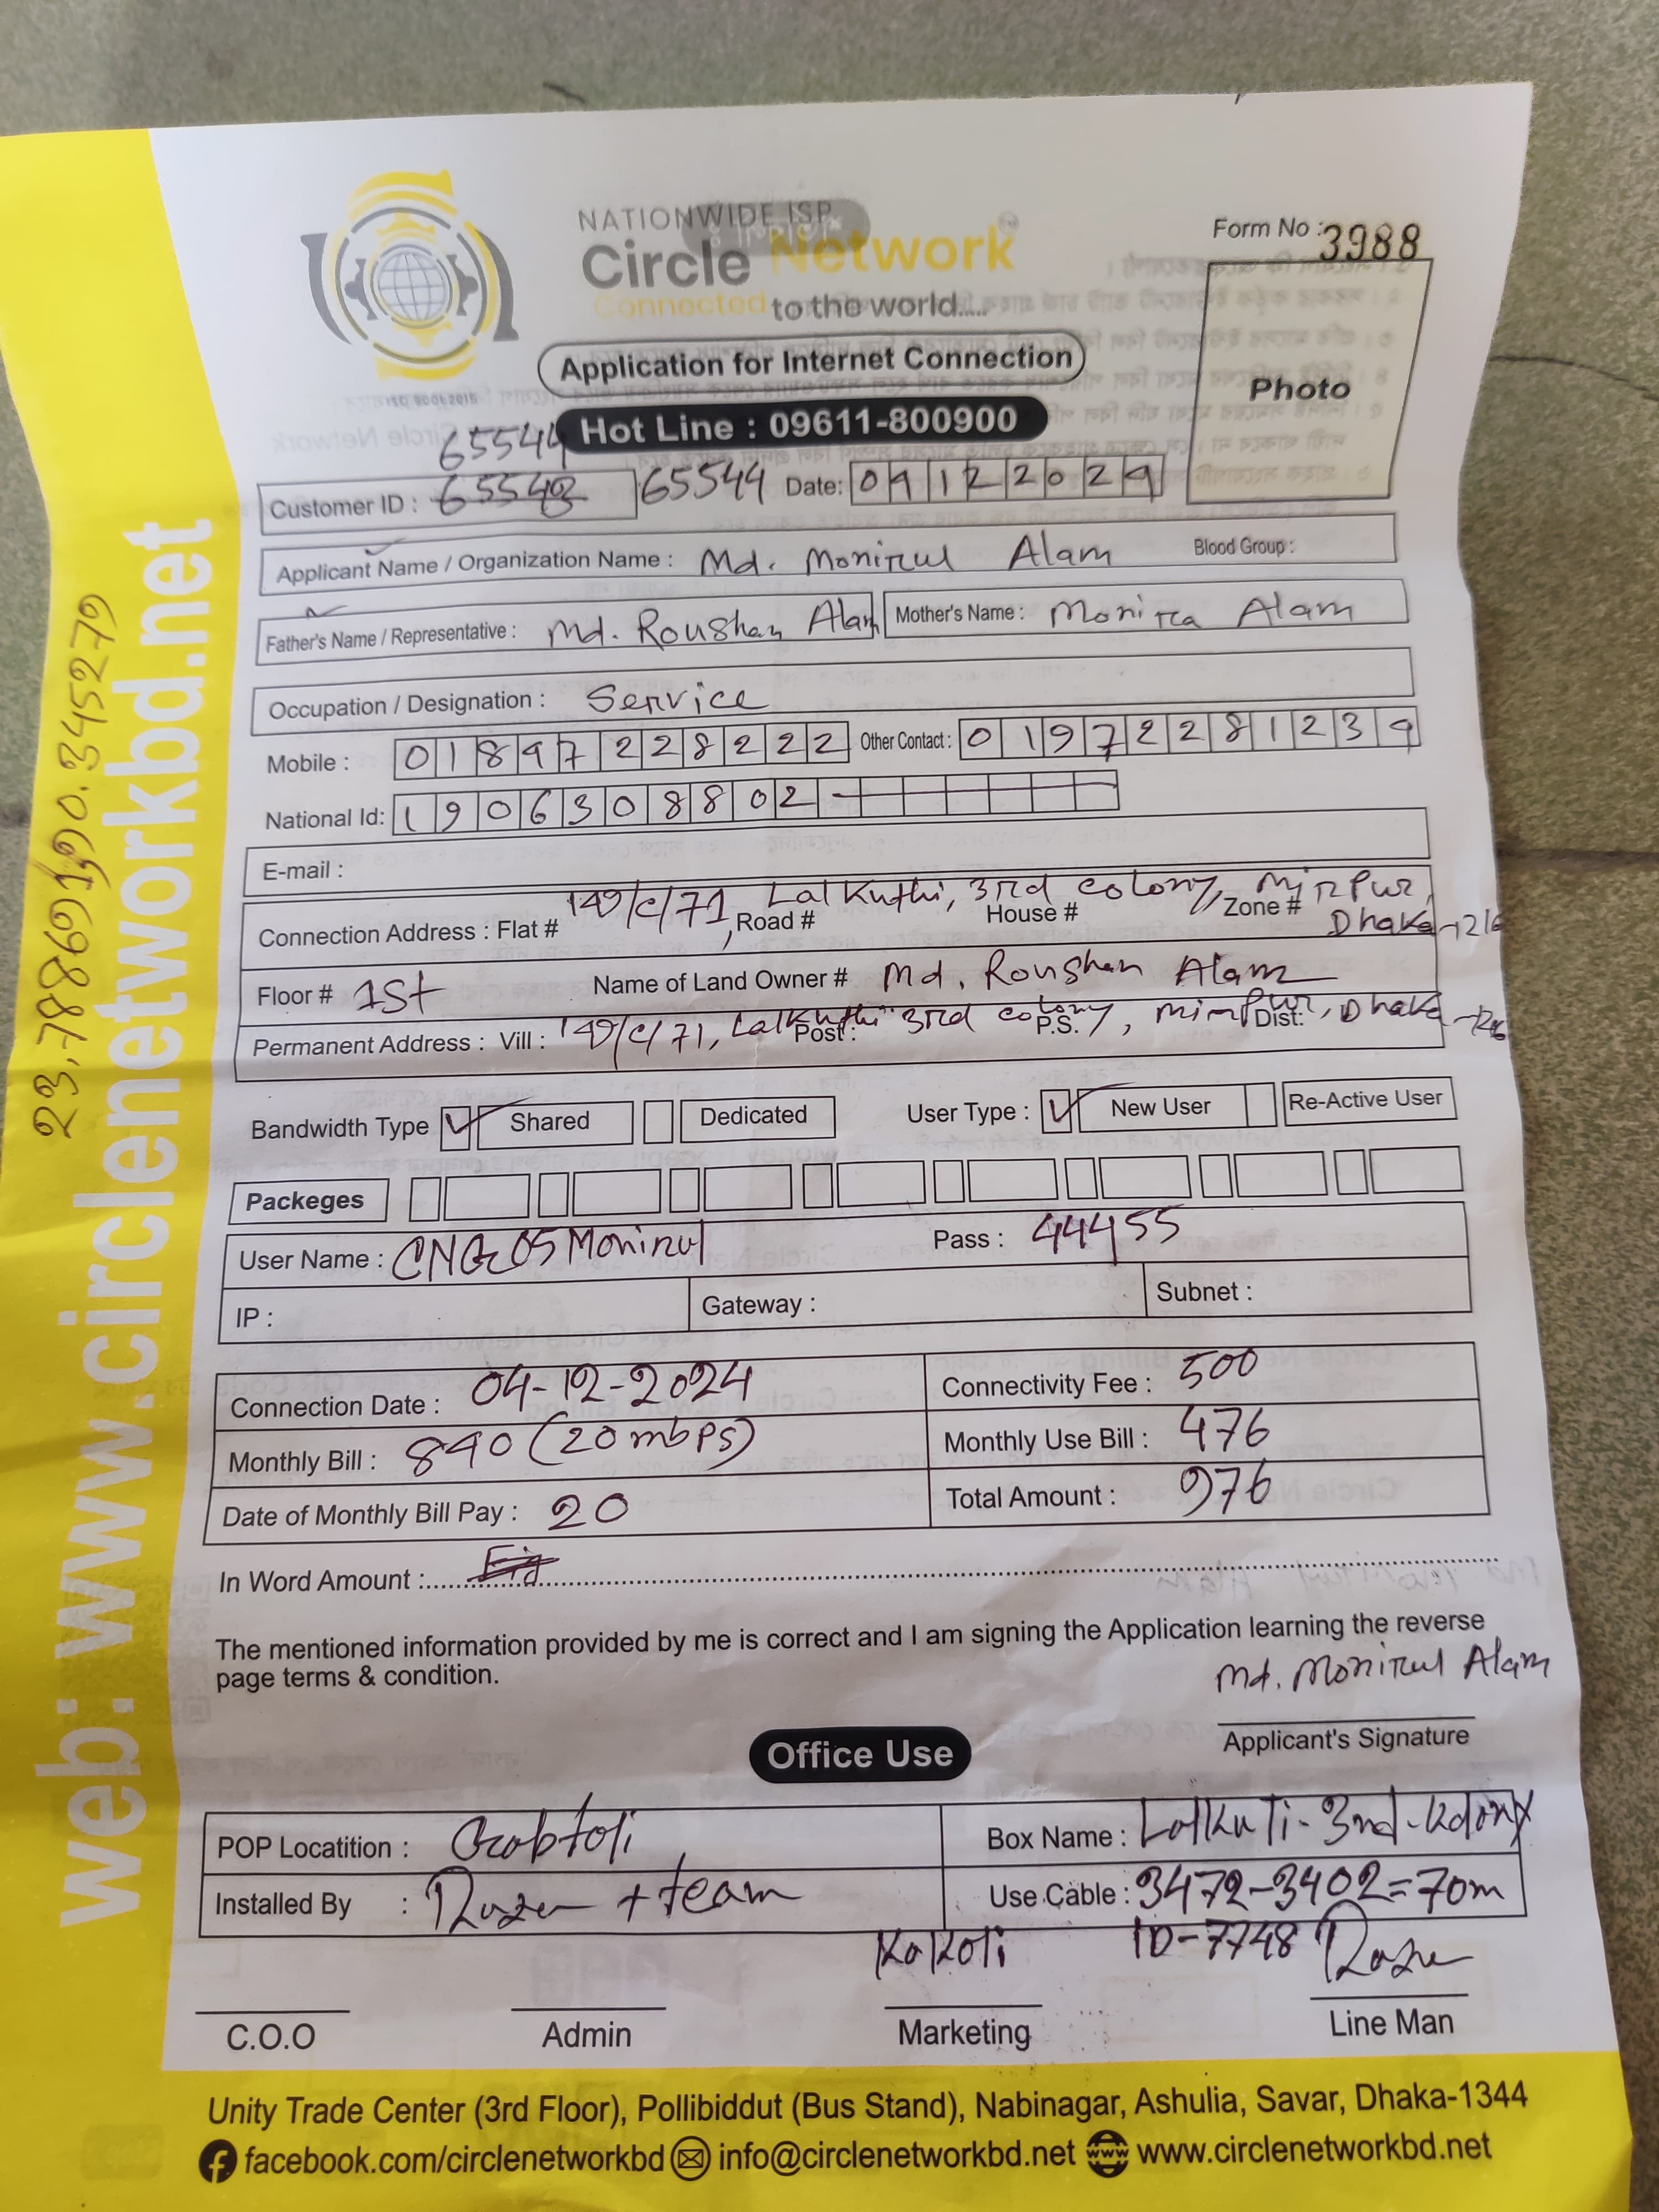 NATIONWIDE ISP
Circle Network
Connected to the world.....
Form No : 3988
Photo
Application for Internet Connection
ISO 9001:2015
Hot Line : 09611-800900
65544
Customer ID : 65543 65544 Date: 04122024
Applicant Name / Organization Name : Md. Monirul Alam Blood Group :
Father's Name / Representative : Md. Roushan Alam Mother's Name : Monira Alam
Occupation / Designation : Service
Mobile : 01897228222 Other Contact : 01972281234
National Id: 1906308802
E-mail :
Connection Address : Flat # 149/c/71, Road # Lalkuthi, 3rd colony, House # Zone # Mirpur,
Dhaka-1216
Floor # 1st Name of Land Owner # Md. Roushan Alam
Permanent Address : Vill : 149/c/71, Lalkuthi Post : 3rd colony, P.S. Mirpur, Dist. Dhaka
Bandwidth Type Shared Dedicated User Type : New User Re-Active User
Packeges
User Name : CNG05Monirul Pass : 44455
IP : Gateway : Subnet :
Connection Date : 04-12-2024 Connectivity Fee : 500
Monthly Bill : 840 (20mbps) Monthly Use Bill : 476
Date of Monthly Bill Pay : 20 Total Amount : 976
In Word Amount :
The mentioned information provided by me is correct and I am signing the Application learning the reverse
page terms & condition.
Md. Monirul Alam
Applicant's Signature
Office Use
POP Locatition : Gabtoli Box Name : Lalkuti-3rd-kolony
Installed By : + team Use Cable : 3472-3402=70m
Kakoli ID-7748
C.O.O Admin Marketing Line Man
Unity Trade Center (3rd Floor), Pollibiddut (Bus Stand), Nabinagar, Ashulia, Savar, Dhaka-1344
facebook.com/circlenetworkbd info@circlenetworkbd.net www www.circlenetworkbd.net
web: www.circlenetworkbd.net